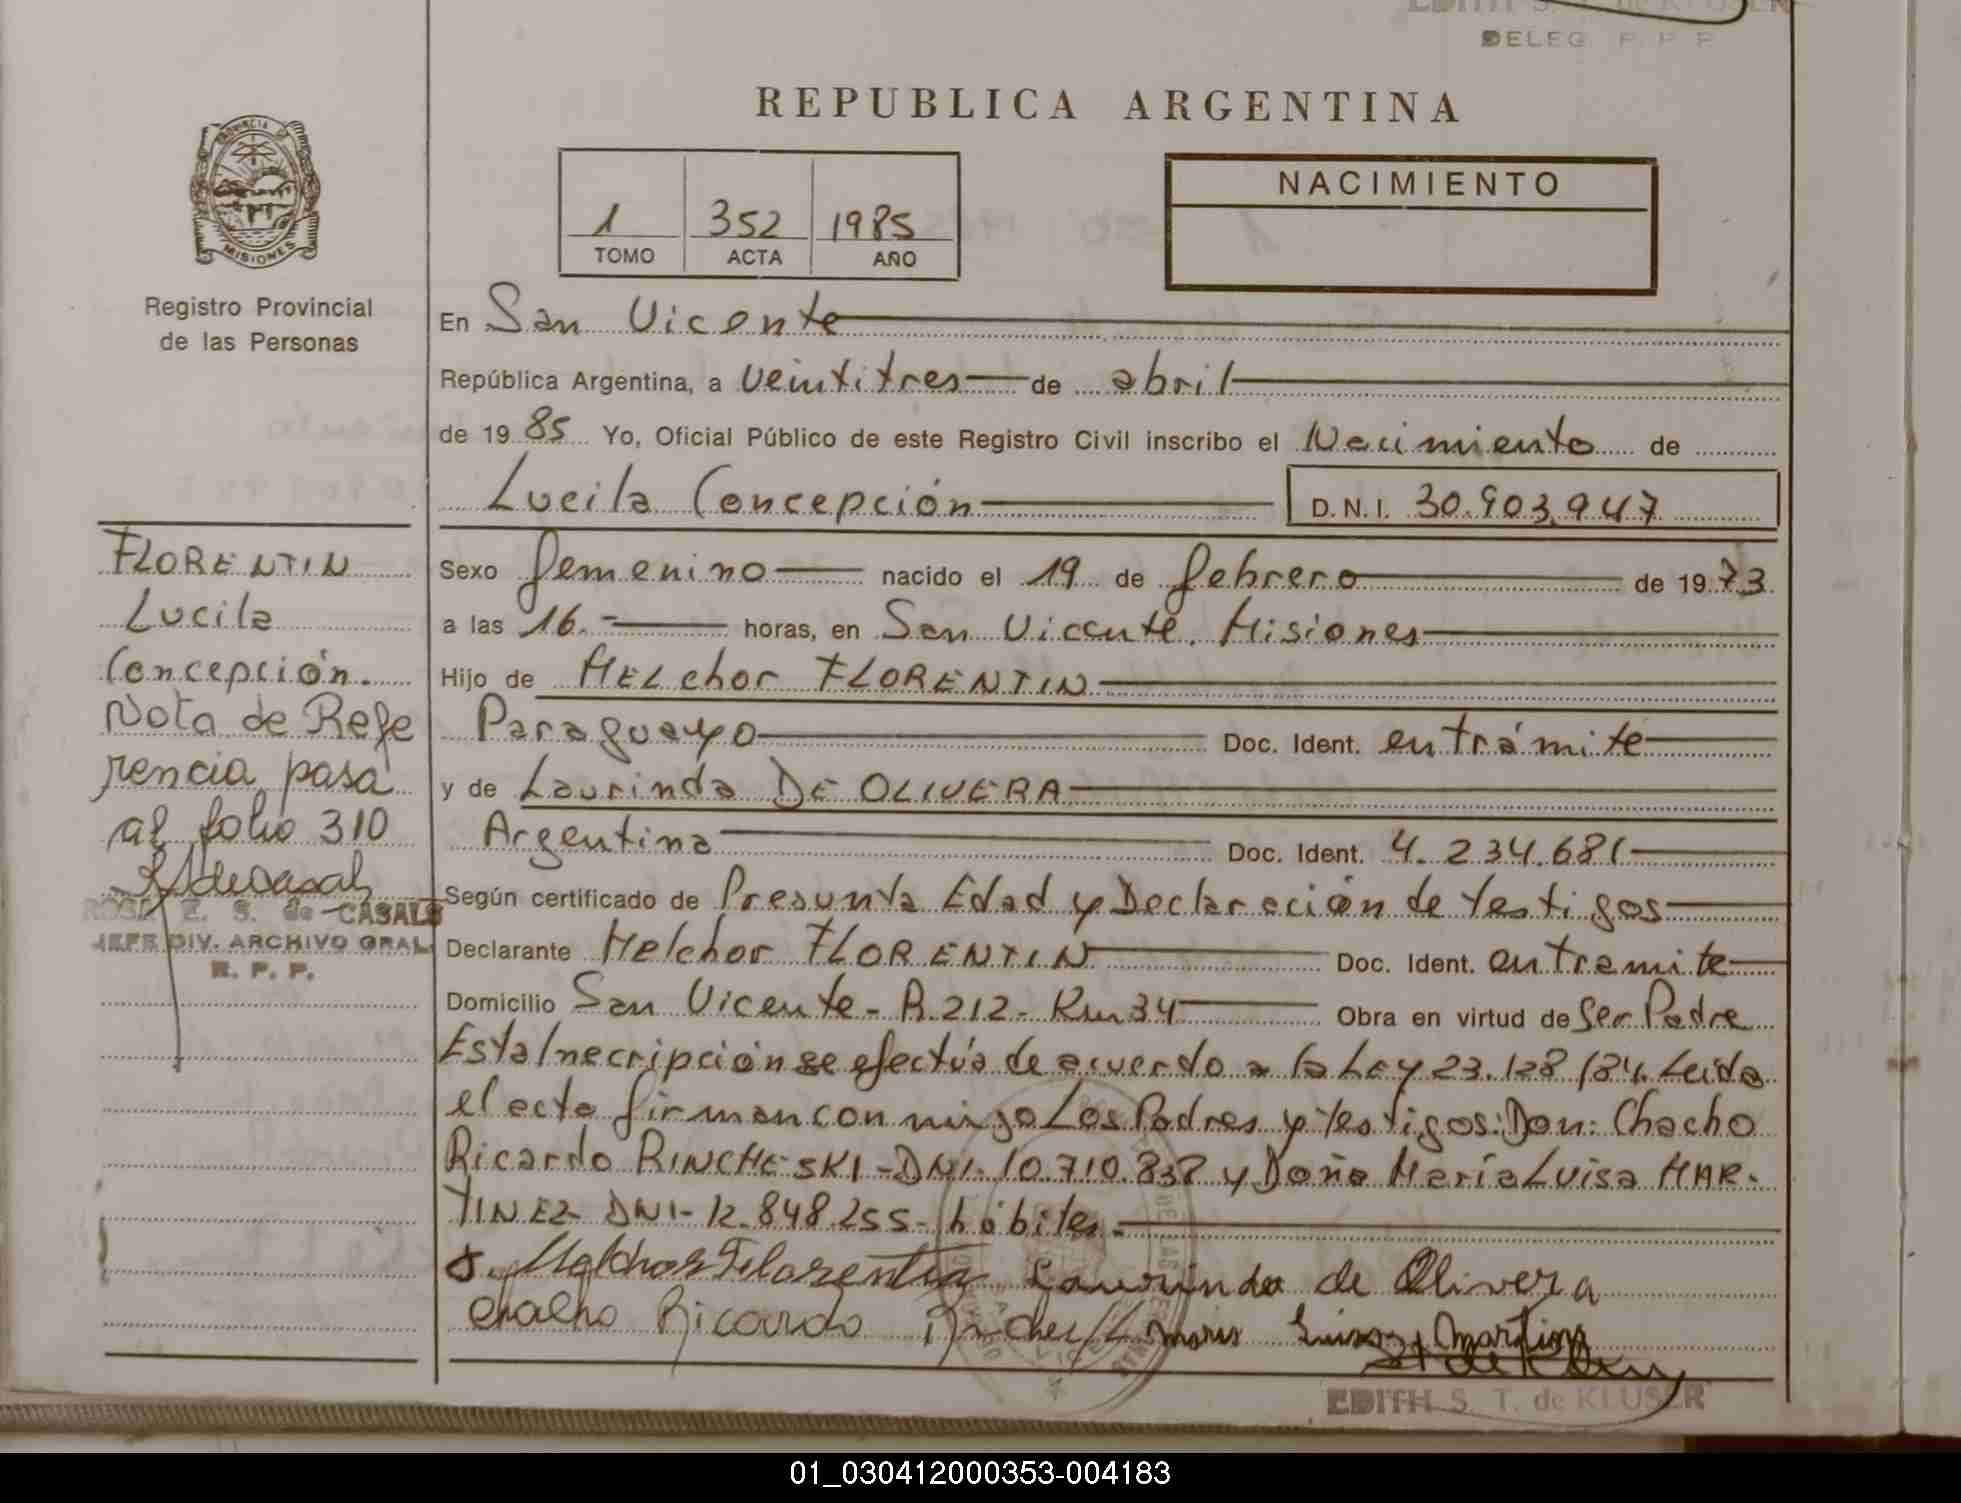 EDITH S. T. de KLUSER
DELEG. P. P. P.
REPUBLICA ARGENTINA
PROVINCIA DE
MISIONES
Registro Provincial
de las Personas
1 352 1985
TOMO ACTA AÑO
NACIMIENTO
En San Vicente
República Argentina, a veintitres de abril
de 1985 Yo, Oficial Público de este Registro Civil inscribo el Nacimiento de
Lucila Concepción D.N.I. 30.903.947
Sexo femenino nacido el 19 de febrero de 1973
a las 16.- horas, en San Vicente, Misiones
Hijo de MELchor FLORENTIN
Paraguayo Doc. Ident. entrámite
y de Laurinda DE OLIVERA
Argentina Doc. Ident. 4.234.681
Según certificado de Presunta Edad y Declaración de testigos
Declarante Melchor FLORENTIN Doc. Ident. entramite
Domicilio San Vicente - R.212 - Km 34 Obra en virtud de Ser Padre
Esta Inscripción se efectúa de acuerdo a la Ley 23.128/84. Leida
el acta firman con migo Los Padres y testigos: Don: Chacho
Ricardo RINCHESKI - DNI. 10.710.838 y Doña María Luisa MAR-
TINEZ DNI- 12.848.255- hábiles.-
Melchor Florentin Laurinda de Olivera
Chacho Ricardo Maria Luisa Martinez
EDITH S. T. de KLUSER
FLORENTIN
Lucila
Concepción.
Nota de Refe
rencia pasa
al folio 310
ROSA E. S. de CASALS
JEFE DIV. ARCHIVO GRAL.
R. P. P.
01_030412000353-004183